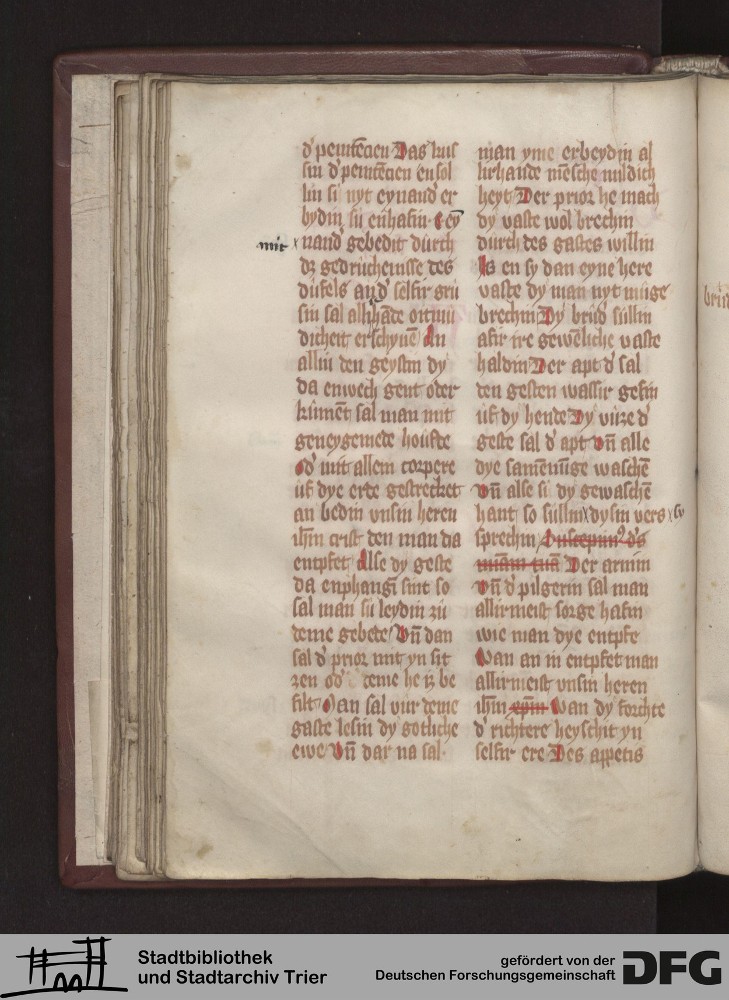 d' penitēcien Das kus
sin d' penitēcien en sol
lin si nyt eynand' er
bydin sú enhafin· e ey
mit
nand' gebedit durch
dz gedruchenisse des
dufels and' selfir grú
sin sal allirhāde oitmú
dicheit erschynē An
allin den geystin dy
da enwech gent oder
kúmēt sal man mit
geneygemede houfde
od' mit allem corpere
uf dye erde gestrecket
an bedin vnsin heren
ihm crist den man da
entpfet Alse dy geste
da enphangē sint so
sal man sú leydin zú
deme gebede Vn̄ dan
sal d' prior mit yn sit
zen od' deme he iz be
filt Man sal vúr deme
gaste lesin dy gotliche
ewe Vn̄ dar na sal
man yme erbeydin al
lirhande mēsche mildich
heyt Der prior he mach
dy vaste wol brechin
durch des gastes willin
Is en sy dan eyne here
vaste dy man nyt múge
brechin Dy brúd' súllin
afir ire gewēliche vaste
haldin Der apt d' sal
den gesten wassir gefin
uf dy hende Dy vúze d'
geste sal d' apt vn̄ alle
dye samēúge waschē
vn̄ alse si dy gewaschē
hant so súllin dysin vers sú
sprechin Suscepim' d's
miām tuā Der armin
vn̄ d' pilgerin sal man
allirmeist sorge hafin
wie man dye entpfe
Wan an in entpfet man
allirmeist vnsin heren
ihm xp̄m Wan dy forchte
d' richtere heyschit yn
selfir ere Des appetis
brúd
Stadtbibliothek
und Stadtarchiv Trier
gefördert von der
Deutschen Forschungsgemeinschaft
DFG